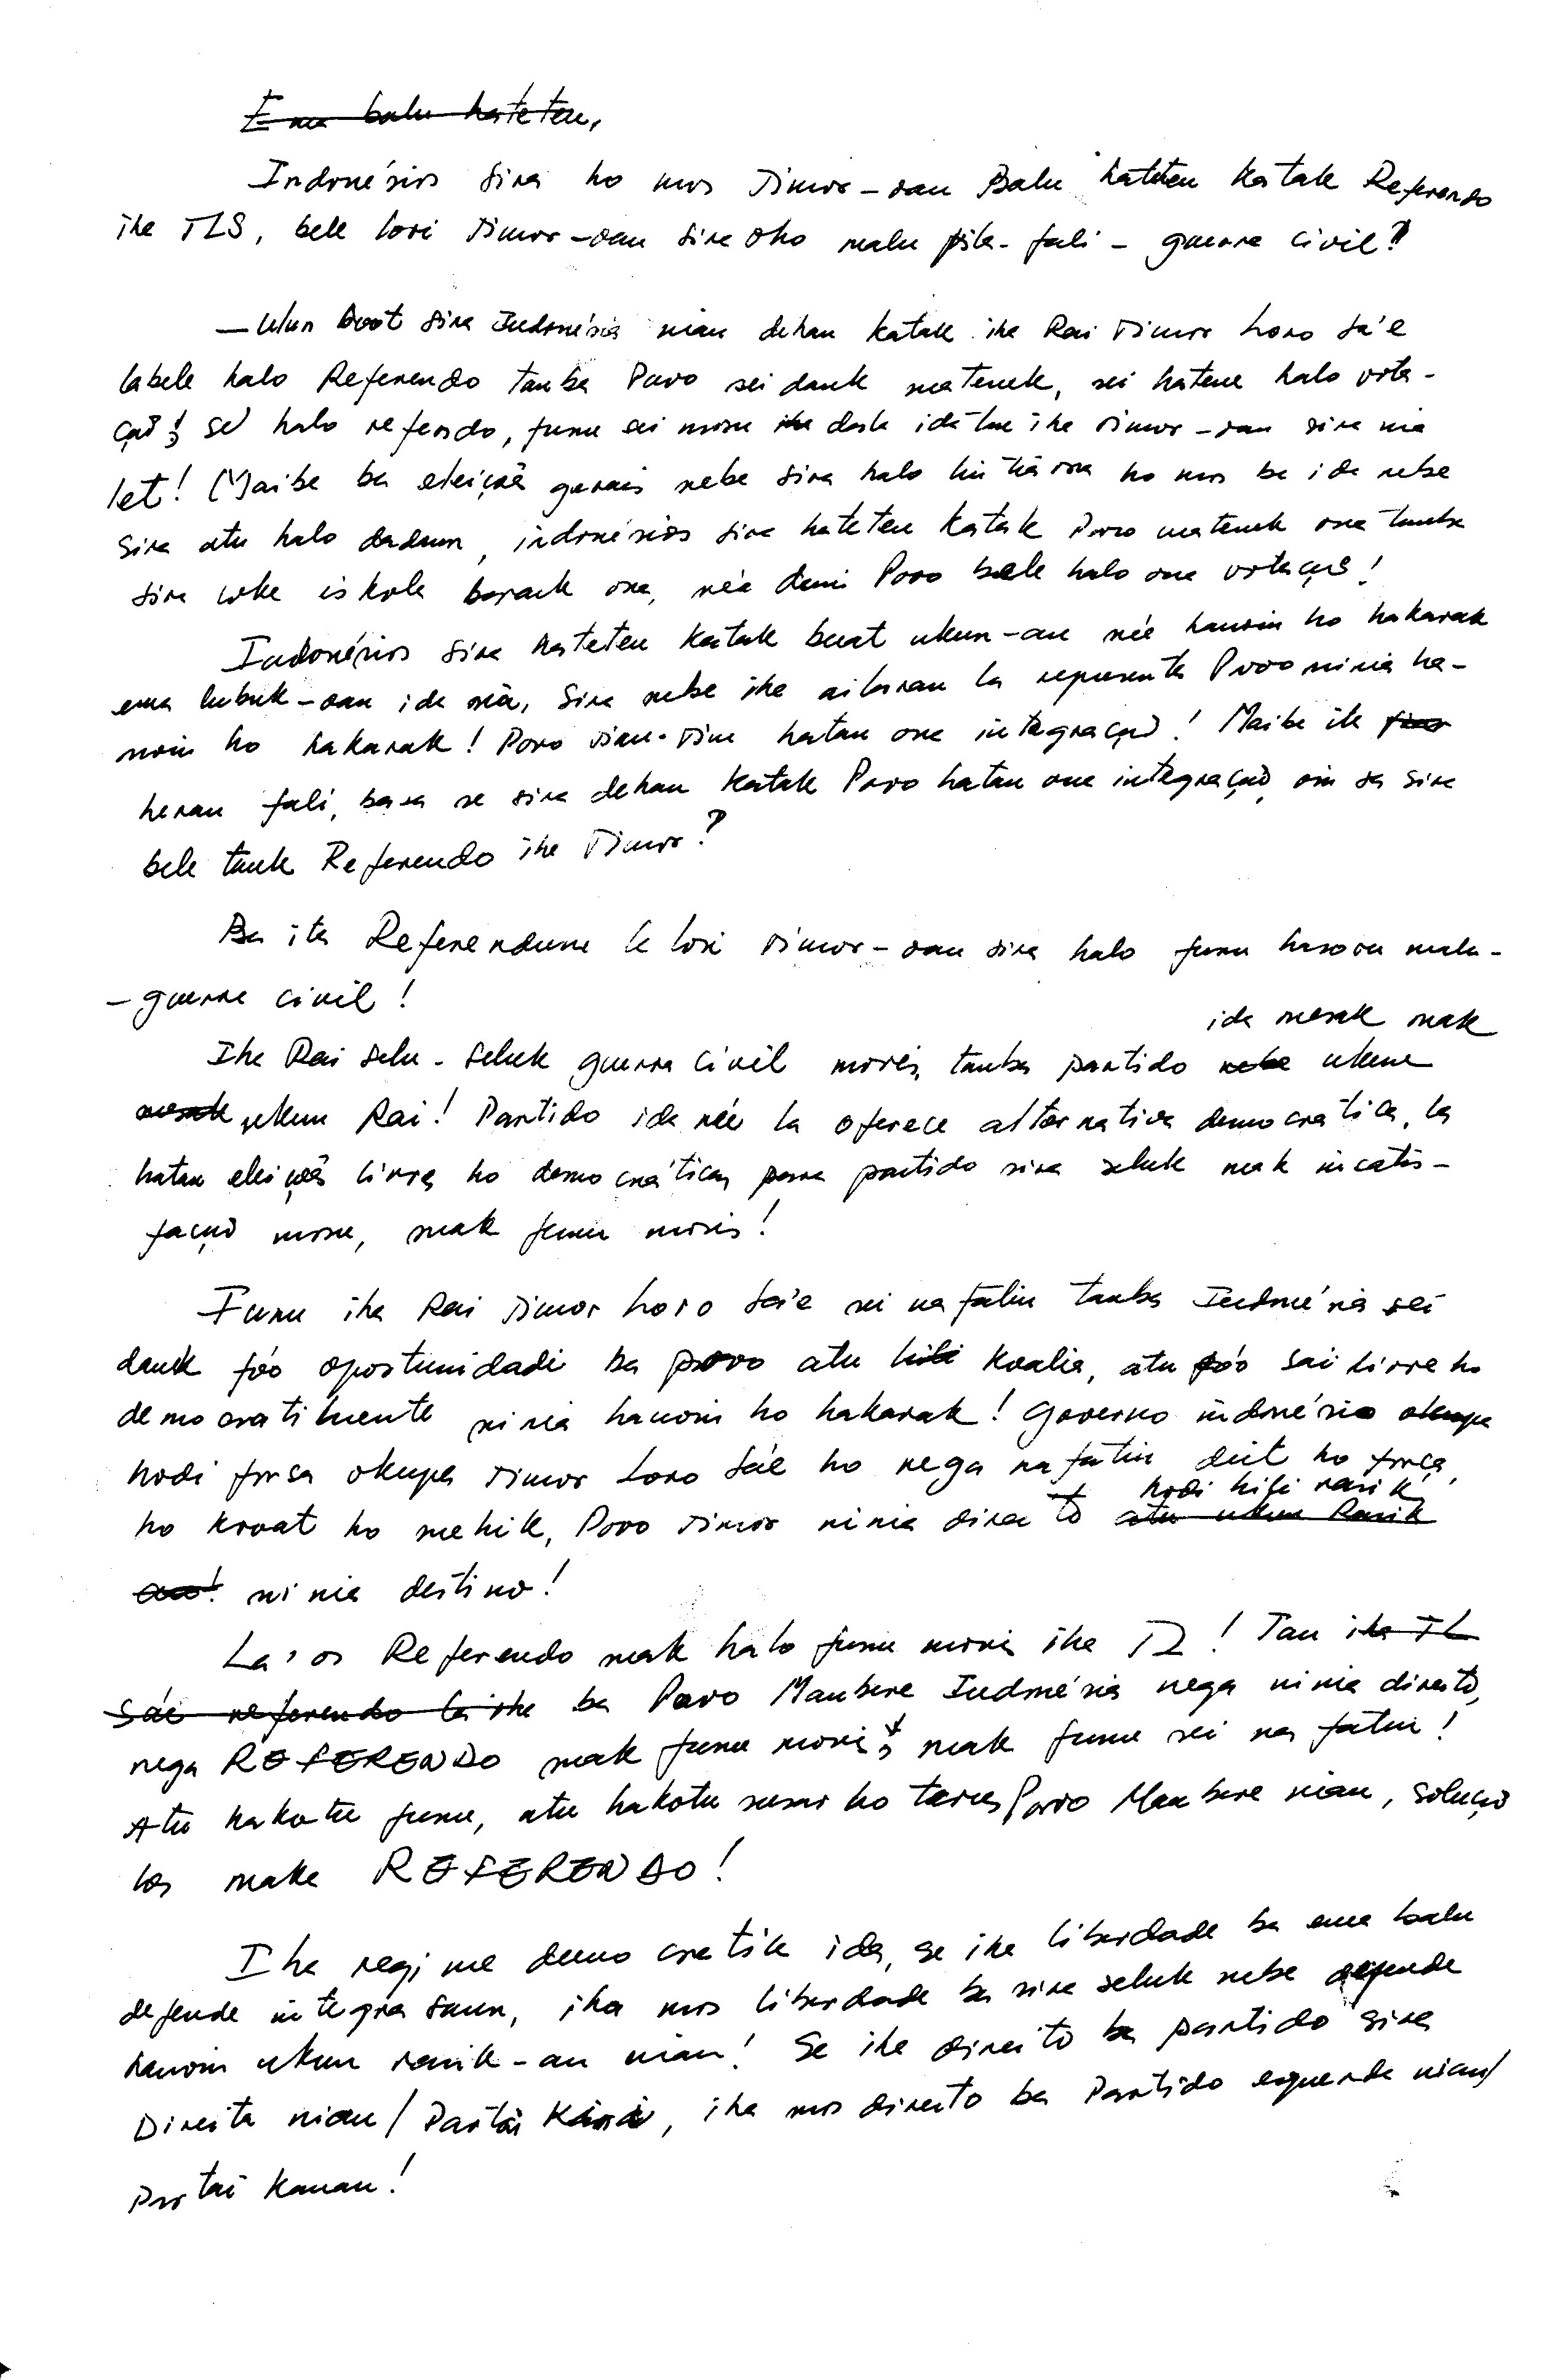 Ema balu hateten,
Indonésios sira ho mos Timor-oan Balu hateten katak Referendo
iha TLS, bele lori Timor-oan sira oho malu fila-fali - guerra civil?
- Ukun Boot sira Indonésia nian dehan katak iha Rai Timor Loro Sa'e
labele halo Referendo tanba Povo sei dauk matenek, sei hatene halo vota-
çaõ! Se halo referendo, funu sei mosu iha dala ida tan iha Timor-oan sira nia
let! Maibe ba eleiçoẽs gerais nebe sira halo liu tiha ona ho mos ba ida nebe
sira atu halo dadaun, indonésios sira hateten katak Povo matenek ona tanba
sira loke iskola barack ona, né'e duni Povo bele halo ona votaçaõ!
Indonésios sira hateten katak buat ukun-an né'e hanoin ho hakarak
ema lubuk-oan ida nia, sira nebe iha ailaran la representa Povo ninia ha-
noin ho hakarak! Povo Timor-Timu hatan ona integraçaõ! Maibe ita
heran fali, basa se sira dehan katak Povo hatan ona integraçaõ, oin sa sira
bele tauk Referendo iha Timor?
Ba ita Referendum la lori Timor-oan sira halo funu hasoru malu-
- guerra civil!
ida mesak mak
Iha Rai selu-seluk guerra civil moris, tanba partido nebe ukun
mesak ukun Rai! Partido ida né'e la oferece alternativa democratica, la
hatan eleiçoẽs livres ho democráticas para partido sira seluk mak incatis-
façaõ mosu, mak funu moris!
Funu iha Rai Timor Loro Sa'e sei nafatin tanba Indonésia sei
dauk fó'o oportunidadi ba povo atu hili koalia, atu fó'o sai livre ho
democratikmente ninia hanoin ho hakarak! Governo indonésio okupa
hodi forsa okupa Timor Loro Sa'e ho nega nafatin deit ho força,
hodi hili rasik
ho kroat ho mehik, Povo Timor ninia direito atu ukun Rasik
an! ninia destino!
La'os Referendo mak halo funu moris iha TL! Tan iha TL
Sa'e referendo la iha ba Povo Maubere Indonésia nega ninia direito,
nega REFERENDO mak funu moris, mak funu sei nafatin!
Atu hakotu funu, atu hakotu susar ho terus Povo Maubere nian, soluçaõ
los maka REFERENDO!
Iha regime democratik ida, se iha liberdade ba ema balu
defende integrasaun, iha mos liberdade ba sira seluk nebe defende
hanoin ukun rasik-an nian! Se iha direito ba partido sira
Direita nian / Partai Kiri, iha mos direito ba Partido esquerda nian/
Partai Kanan!